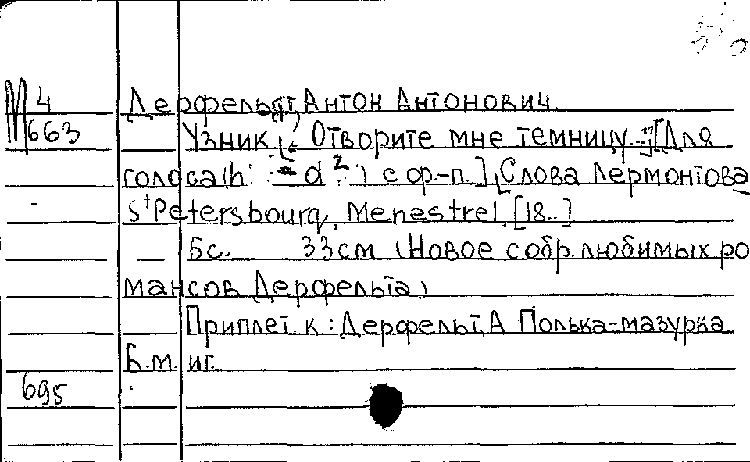 М 4
663
Дерфельдт, Антон Антонович.
Узник: "Отворите мне темницу..." [Для
голоса (h - d²) с ф-п.] Слова Лермонтова
St Petersbourg, Menestrel, [18..]
5 с. 33 см (Новое собр. любимых ро
мансов Дерфельта)
Приплет. к: Дерфельт, А Полька-мазурка
Б.м. и г.
695